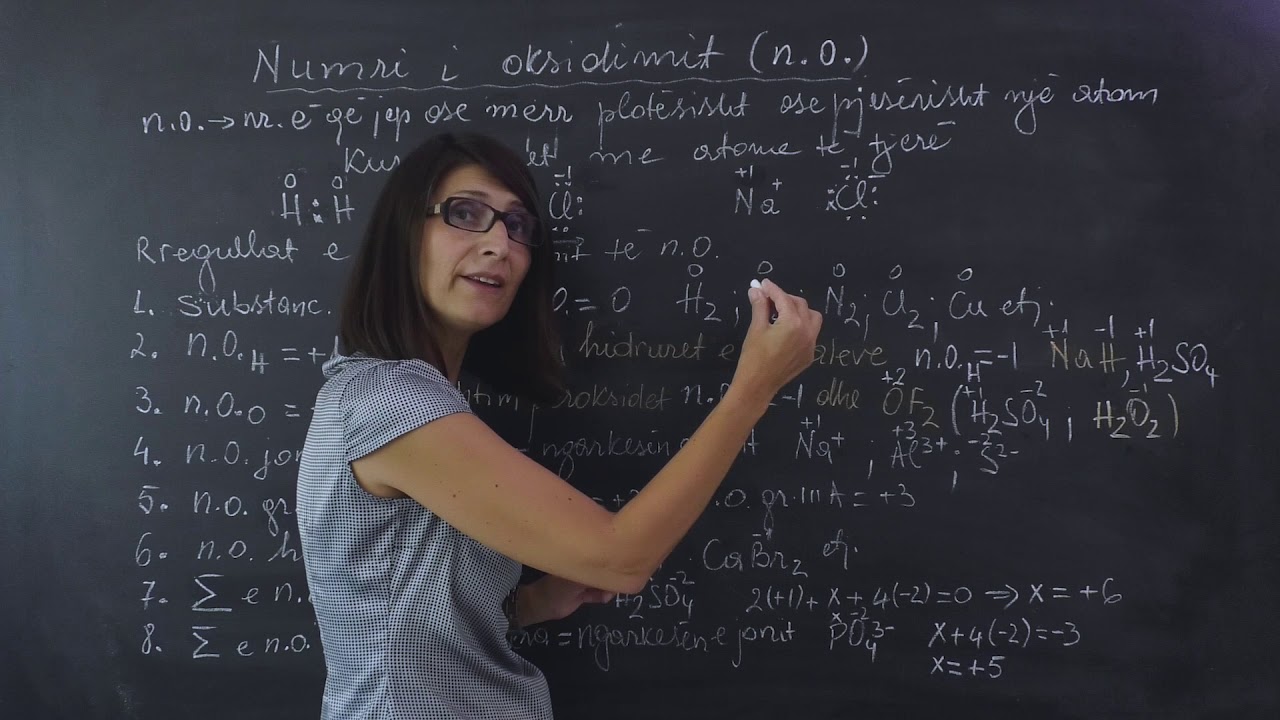 Numri i oksidimit (n.O.)
n.O. → nr. ē që jep ose merr plotësisht ose pjesërisht një atom
kur me atome të tjerë
H : H Cl Na⁺ Cl⁻
Rregullat e të n.O.
1. Substanc. = 0 H₂ ; N₂ ; Cl₂ ; Cu etj.
2. n.O. H = + hidruret e n.O. H = -1 NaH, H₂SO₄
3. n.O. O = peroksidet = -1 dhe OF₂ (H₂SO₄ ; H₂O₂)
4. n.O. jon ngarkesën Na⁺ ; Al³⁺ ; S²⁻
5. n.O. gr. gr. III A = +3
6. n.O. CaBr₂ etj.
7. Σ e n. H₂SO₄ 2(+1) + x + 4(-2) = 0 → x = +6
8. Σ e n.O. = ngarkesën e jonit PO₄³⁻ x + 4(-2) = -3
x = +5